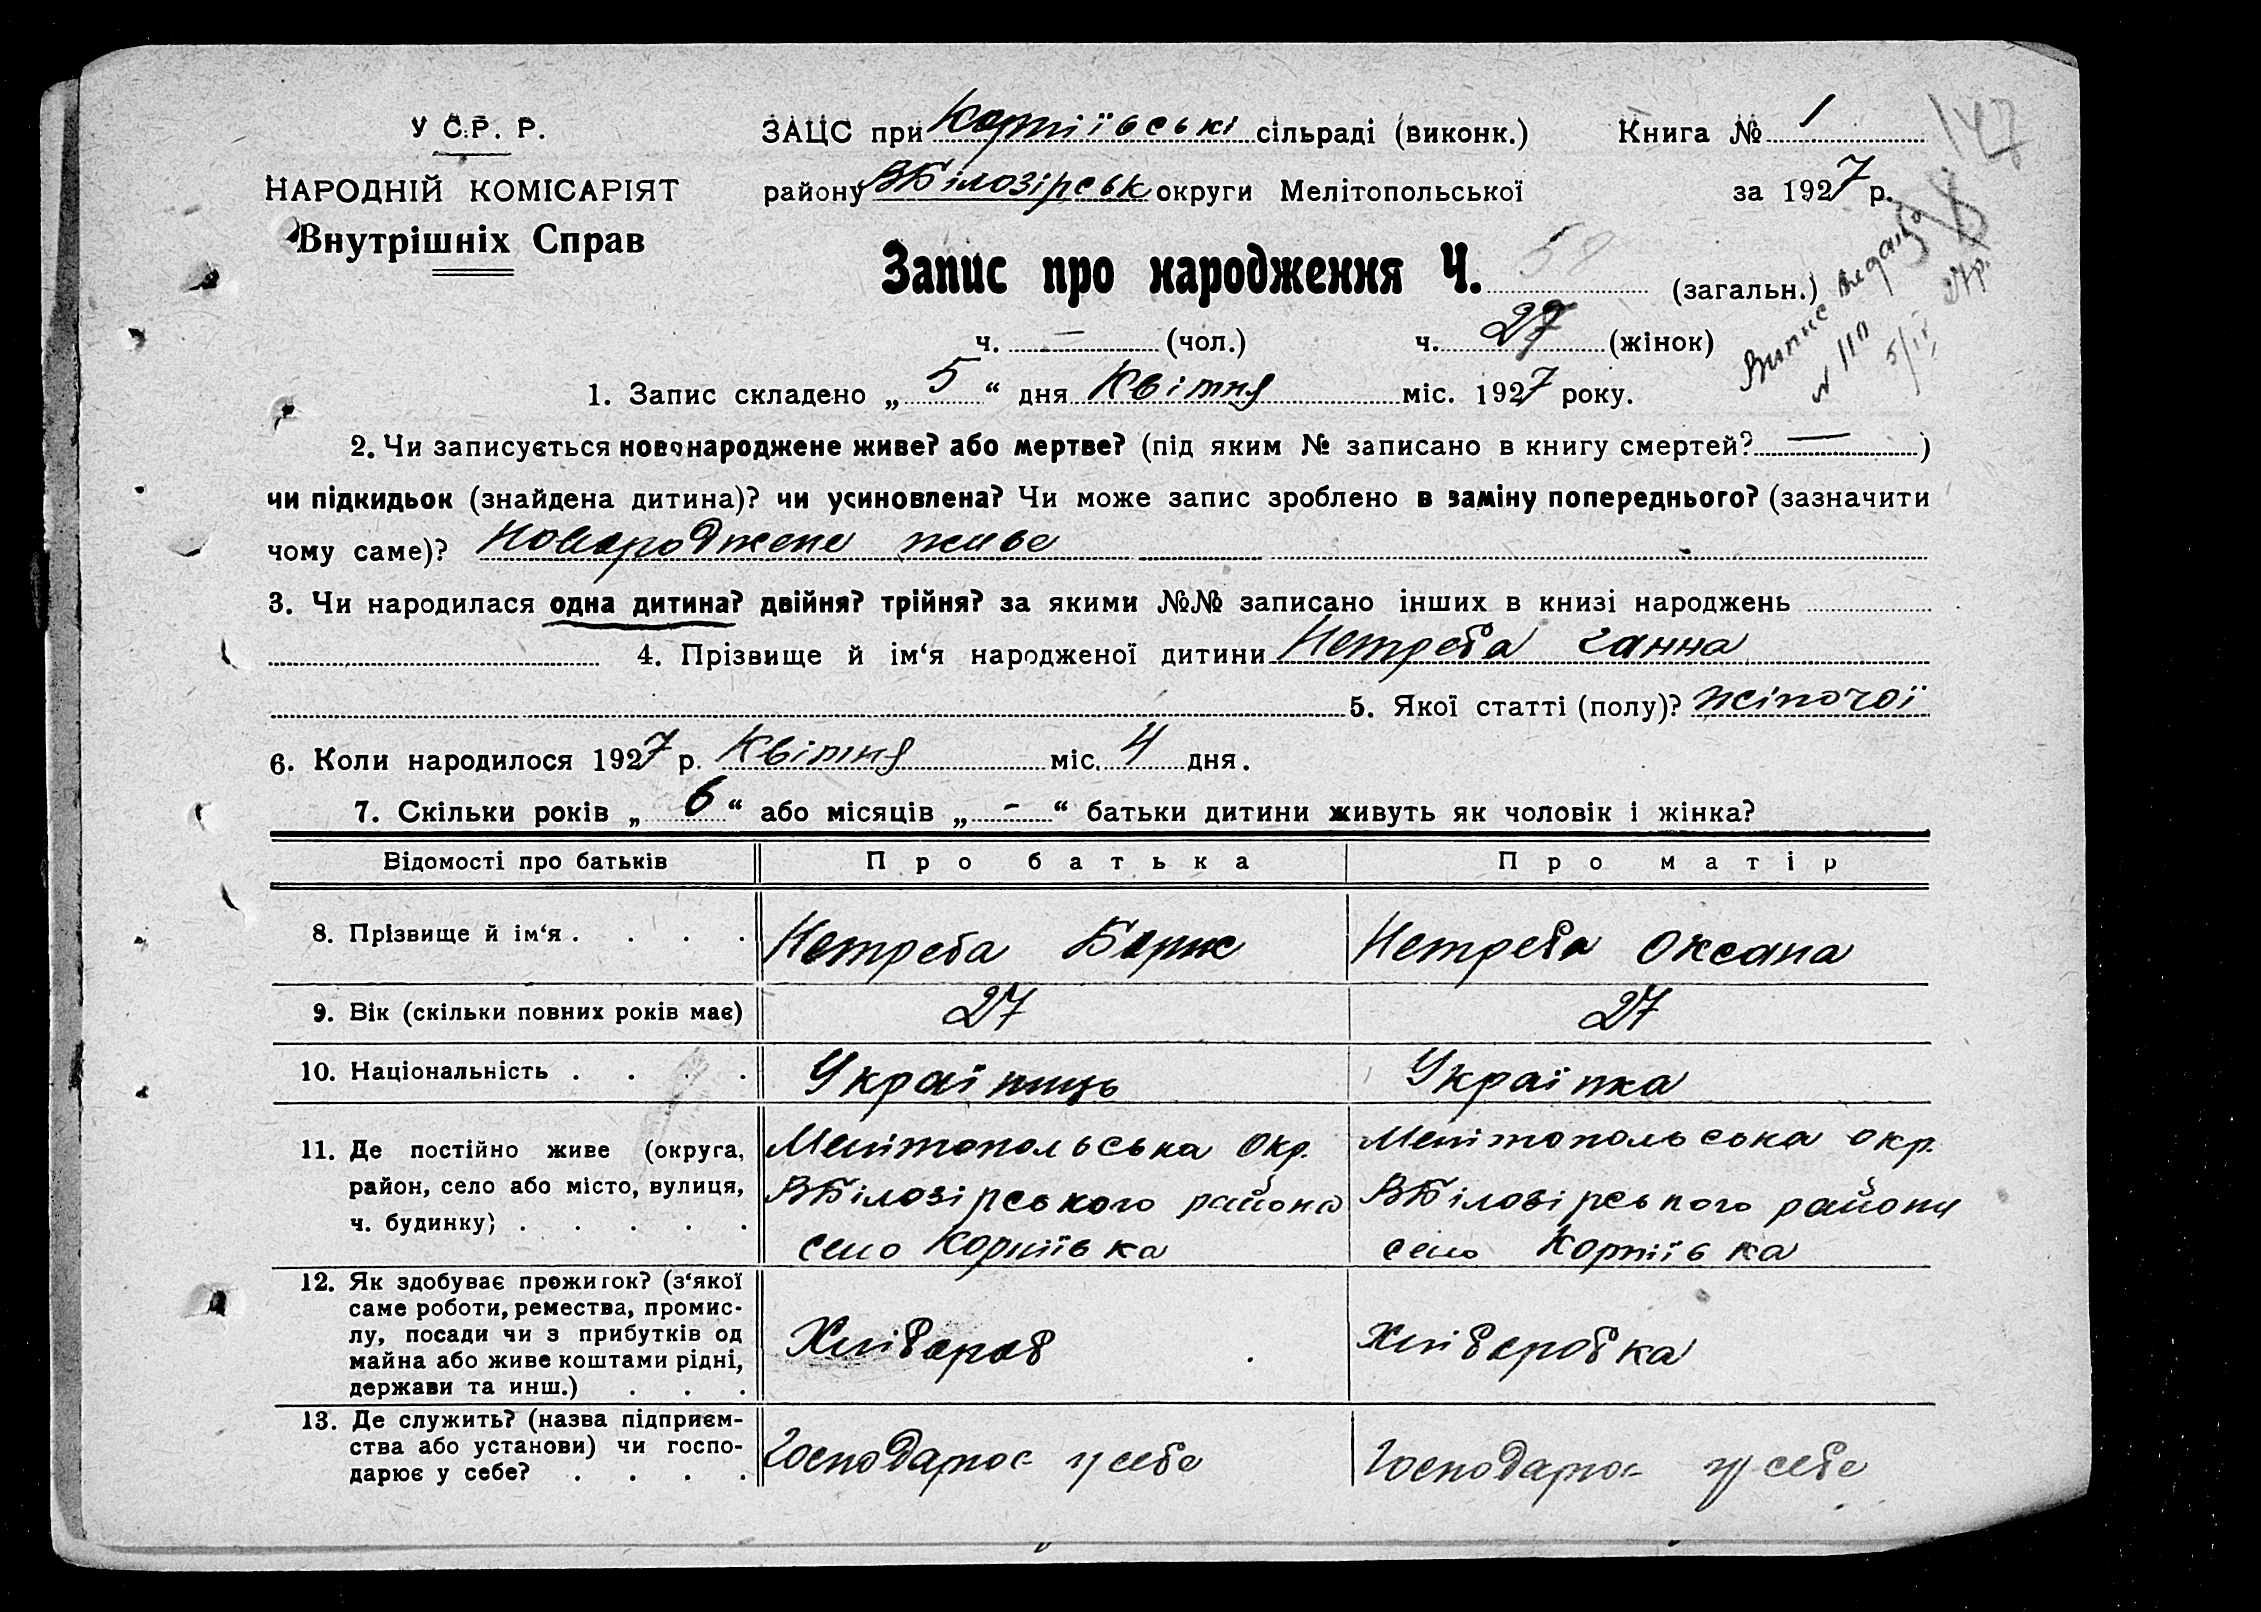 У С.Р. Р.
НАРОДНІЙ КОМІСАРІЯТ
Внутрішніх Справ
ЗАЦС при Корніївські сільраді (виконк.) Книга № 1
147
району ВБілозірськ округи Мелітопольської за 1927 р.
Запис про народження Ч. (загальн.)
Випис видано
№ 110 5/IV 27р.
ч. — (чол.) ч. 27 (жінок)
1. Запис складено „ 5 “ дня Квітня міс. 1927 року.
2. Чи записується новонароджене живе? або мертве? (під яким № записано в книгу смертей? — )
чи підкидьок (знайдена дитина)? чи усиновлена? Чи може запис зроблено в заміну попереднього? (зазначити
чому саме)? Новороджене живе
3. Чи народилася одна дитина? двійня? трійня? за якими №№ записано інших в книзі народжень
4. Прізвище й ім‘я народженої дитини Нетреба Ганна
5. Якої статті (полу)? жіночої
6. Коли народилося 1927 р. Квітня міс. 4 дня.
7. Скільки років „ 6 “ або місяців „ - “ батьки дитини живуть як чоловік і жінка?
Відомості про батьків Про батька Про матір
8. Прізвище й ім‘я . . . . Нетреба Борис Нетреба Оксана
9. Вік (скільки повних років має) 27 27
10. Національність . . . . Українць Українка
11. Де постійно живе (округа, Мелітопольська Окр. Мелітопольська окр.
район, село або місто, вулиця, ВБілозірського района ВБілозірського района
ч. будинку) . . . . . село Корніївка село Корніївка
12. Як здобуває прожиток? (з‘якої
саме роботи, ремества, промис-
лу, посади чи з прибутків од Хлібороб Хліборобка
майна або живе коштами рідні,
держави та инш.) . . .
13. Де служить? (назва підприєм-
ства або установи) чи госпо- Господарює у себе Господарює у себе
дарює у себе? . . . .